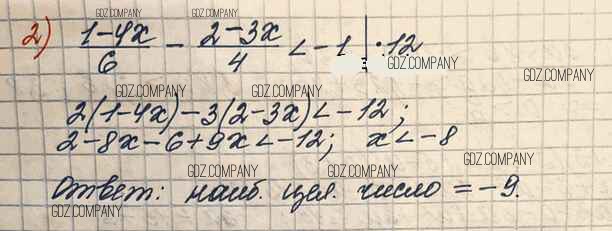 GDZ.COMPANY GDZ.COMPANY
2) (1-4x)/6 - (2-3x)/4 < -1 | ·12
GDZ.COMPANY
GDZ.COMPANY GDZ.COMPANY GDZ.COMPANY
2(1-4x)-3(2-3x)<-12;
2-8x-6+9x<-12; x<-8
GDZ.COMPANY GDZ.COMPANY GDZ.COMPANY
Ответ: наиб. цел. число = -9.
GDZ.COMPANY